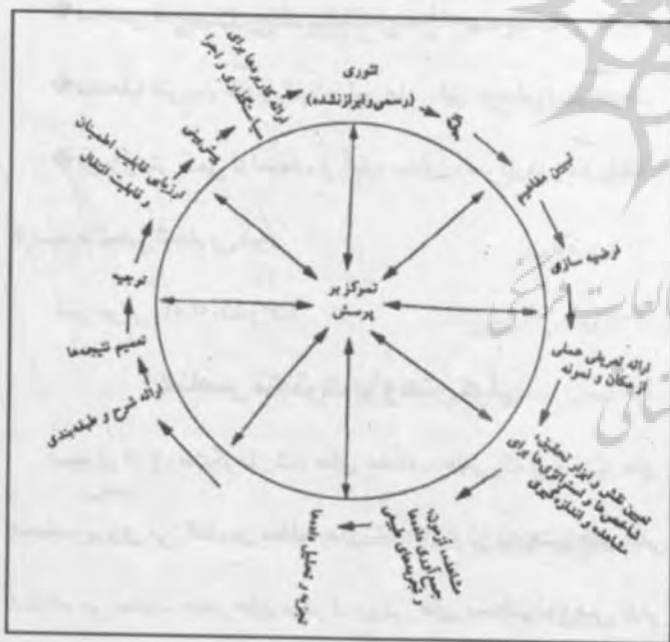 تئوری
(رسمی و ابراز نشده)
مدل
تبیین مفاهیم
فرضیه سازی
ارائه تعریفی عملی
از مکان و نمونه
تعیین نقش و ابزار تحقیق،
شاخص‌ها و استراتژی‌ها برای
مشاهده و اندازه گیری
مشاهده، آزمون،
جمع‌آوری داده‌ها
و تجربه‌های طبیعی
تجزیه و تحلیل داده‌ها
ارائه شرح و طبقه‌بندی
تعمیم نتیجه‌ها
توجیه
ارزیابی قابلیت اطمینان
و قابلیت انتقال
پیش‌بینی
ارائه کاربردها برای
سیاستگذاری و اجرا
تمرکز بر
پرسش